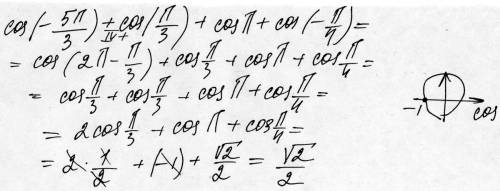 cos(-5π/3) + cos(π/3) + cos π + cos(-π/4) =
IV+
= cos(2π - π/3) + cos π/3 + cos π + cos π/4 =
= cos π/3 + cos π/3 + cos π + cos π/4 =
= 2cos π/3 + cos π + cos π/4 =
= 2 · 1/2 + (-1) + √2/2 = √2/2
-1 cos